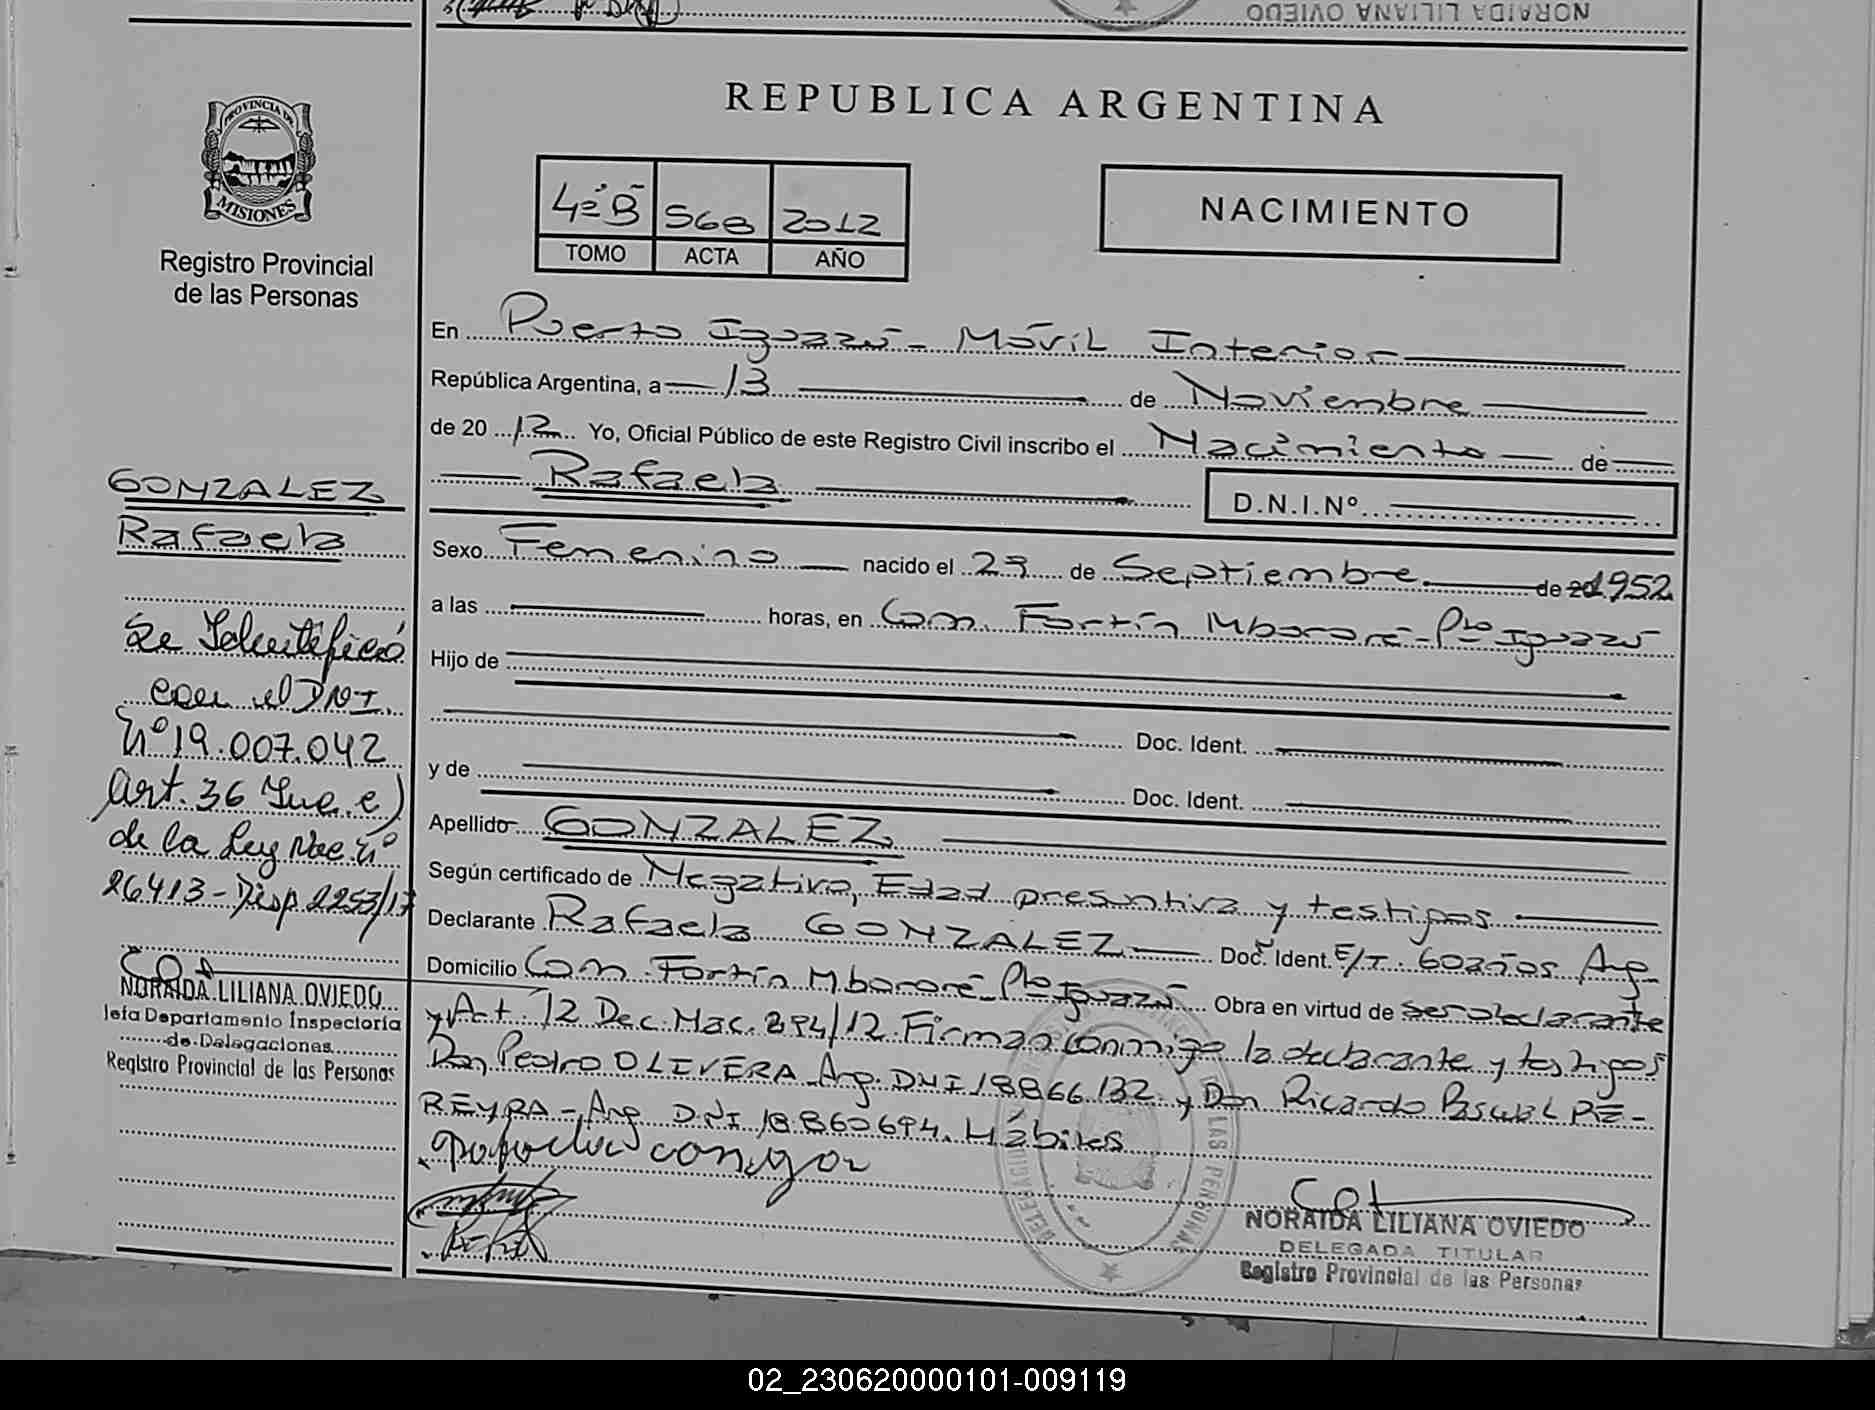 NORAIDA LILIANA OVIEDO
PROVINCIA DE
MISIONES
Registro Provincial
de las Personas
REPUBLICA ARGENTINA
4º B 568 2012
TOMO ACTA AÑO
NACIMIENTO
En Puerto Iguazú - Móvil Interior
República Argentina, a 13 de Noviembre
de 20 12 Yo, Oficial Público de este Registro Civil inscribo el Nacimiento de
Rafaela D.N.I.Nº
Sexo Femenino nacido el 29 de Septiembre de 20 1952
a las horas, en Com. Fortín Mbororé - Pto Iguazú
Hijo de
Doc. Ident.
y de Doc. Ident.
Apellido GONZALEZ
Según certificado de Negativo, Edad presuntiva y testigos
Declarante Rafaela GONZALEZ Doc. Ident. E/T. 60 años Arg
Domicilio Com. Fortín Mbororé - Pto Iguazú Obra en virtud de ser declarante
y Art. 12 Dec. Nac. 294/12. Firman conmigo la declarante y testigos
Don Pedro OLIVERA - Arg. DNI 18866132 y Don Ricardo Pascual PE-
REYRA - Arg. D.N.I 18860694. Hábiles
NORAIDA LILIANA OVIEDO
DELEGADA TITULAR
Registro Provincial de las Personas
GONZALEZ
Rafaela
Se Identificó
con el DNI.
Nº 19.007.042
Art. 36 Inc. e)
de la Ley Nac. Nº
26413 - Disp. 2253/17
NORAIDA LILIANA OVIEDO
Jefa Departamento Inspectoria
de Delegaciones
Registro Provincial de las Personas
02_230620000101-009119